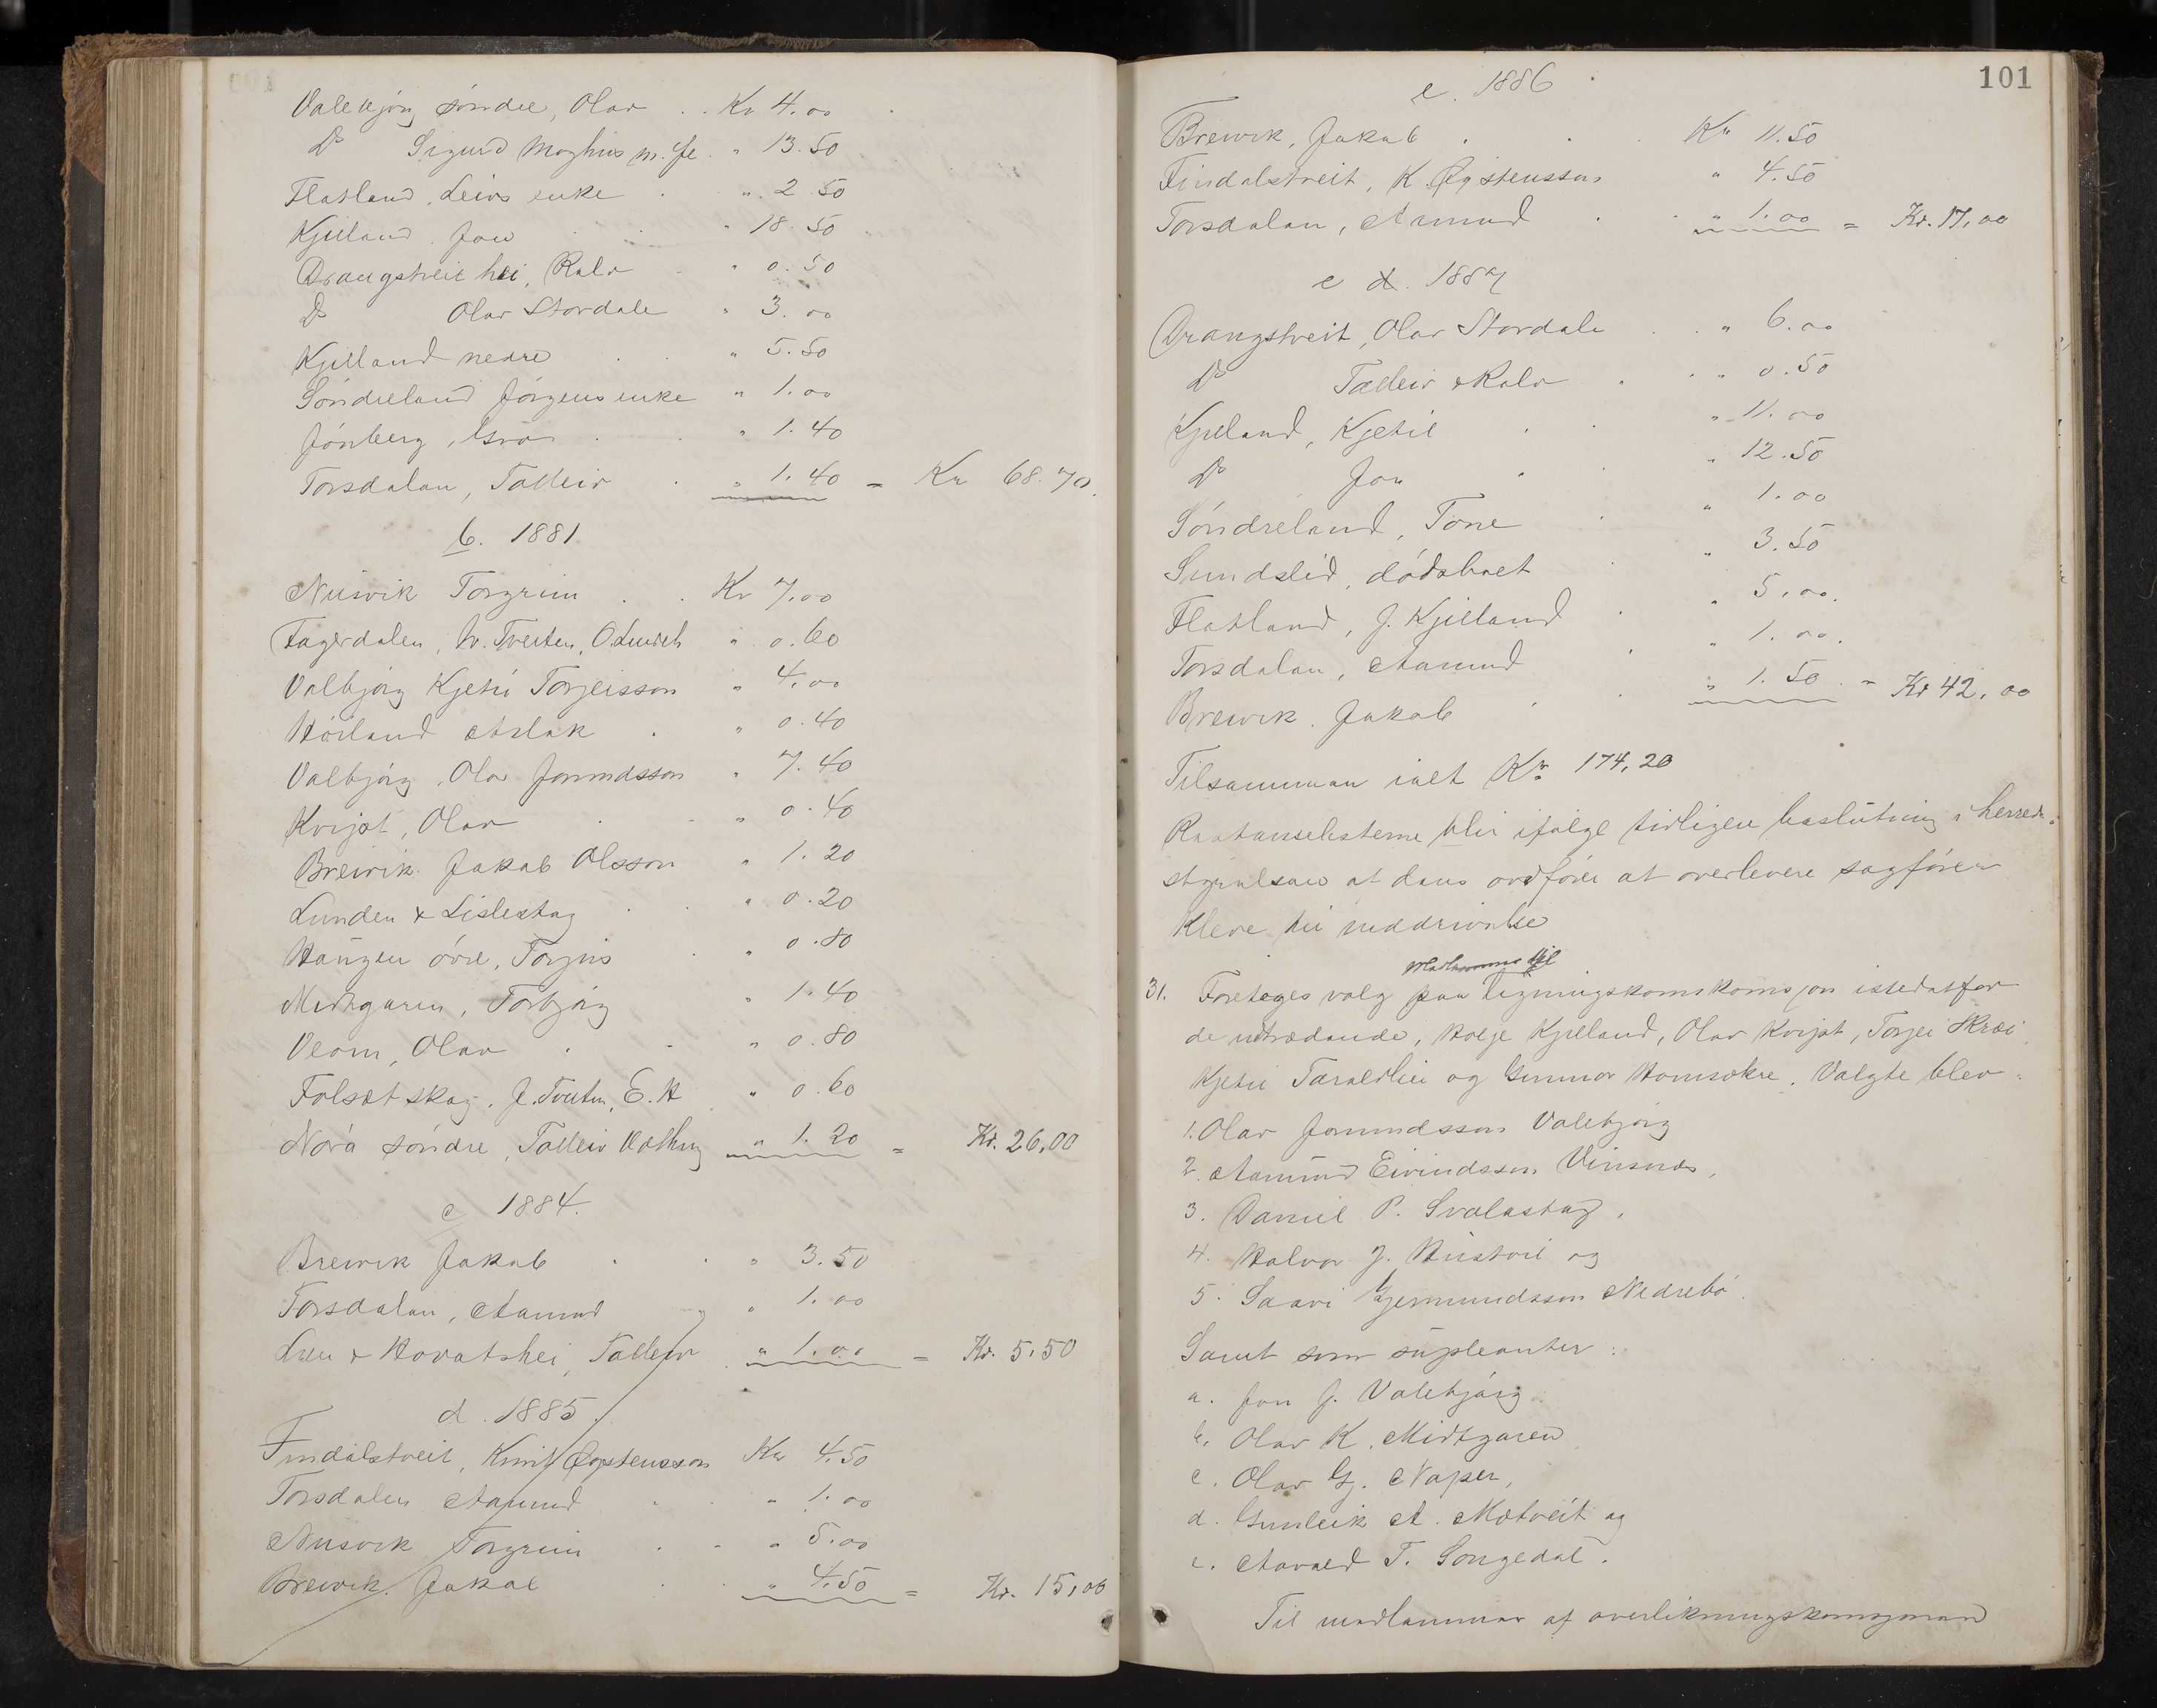 Valebjørg søndre, Olav . . Kr 4.00
Do Sigurd Moghus m. fl. " 13.50
Flatland, Leivs enke . " 2.50
Kjilland. Jon . . " 18.50
Drangstveit hei, Kalv . " 0.50
Do Olav Stordale " 3.00
Kjilland nedre . . " 5.50
Söndreland Jørgens enke " 1.00
Jönberg, Gro . . " 1.40
Torsdalan, Talleiv . " 1.40 = Kr 68.70.
b. 1881
Nisvik Torgrim . . Kr 7.00
Fagerdalen, h. Tveiten, O. " 0.60
Valbjörg Kjetil Torjeisson " 4.00
Höiland Aslak . " 0.40
Valbjörg, Olav Jormndsson " 7.40
Kvijat, Olav . . " 0.40
Breivik. Jakab Olsson " 1.20
Lunden & Lislestog . . " 0.20
Haugen övre, Torjus . " 0.80
Midtgaren, Torbjörg " 1.40
Veom, Olav . . " 0.80
Folsæt skog, J. Tveiten, E. H " 0.60
Nora söndre, Talleiv " 1.20 = Kr. 26,00
c 1884.
Breivik Jakab . . " 3.50
Torsdalan, Aamund " 1.00
& Hovatshei, Talleiv " 1.00 = Kr. 5,50
d. 1885.
Findalstveit, Knut Øystensson Kr 4.50
Torsdalen Aamund . . " 1.00
Nisvik Torgrim . . " 5.00
Breivik. Jakab . " 4.50 = Kr. 15,00
101
e. 1886
Breivik, Jakab . . Kr 11.50
Findalstveit, K. Øystensson " 4.50
Torsdalan, Amund . . " 1.00 = Kr. 17,00
e d. 1887
Drangstveit, Olav Stordale . . " 6.00
Do Talleiv & Kalv . . " 0.50
Kjilland, Kjetil . . " 11.00
Do Jon . . " 12.50
Söndreland, Tone . " 1.00
Sundslid, dödsboet . " 3.50
Flatland, J. Kjilland . " 5.00.
Torsdalan, Aamund . " 1.00.
Breivik. Jakab . . " 1.50 = Kr 42,00
Tilsamman ialt Kr 174,20
Restanselisterne blir ifølge tidligere beslutning i herreds-
styrelsen at dens ordfører at overlevere sagfører
Kleve til inddrivelse
medlemmer til
31. Foretoges valg paa ligningskomskomsjon istedatfor
de udtrædande, Holje Kjilland, Olav Kvijat, Torjei Skræi
Kjetil Taraldlien og Gunnar Homsokre. Valgte blev:
1. Olav Jormundsson Valebjörg
2. Aamund Eivindsson Vinsnes,
3. Daniel P. Svalastog,
4. Halvor J. Hustveit og
5. Saavi Gjermundsson Nedrebö.
Samt som supleanter:
a. Jon J. Valebjörg
b. Olav K. Midtgaren
c. Olav G. Naper,
d. Gunleik A. Motveit og
e. Aavald T. Songedal.
Til medlammar af overlikningskomsjonen